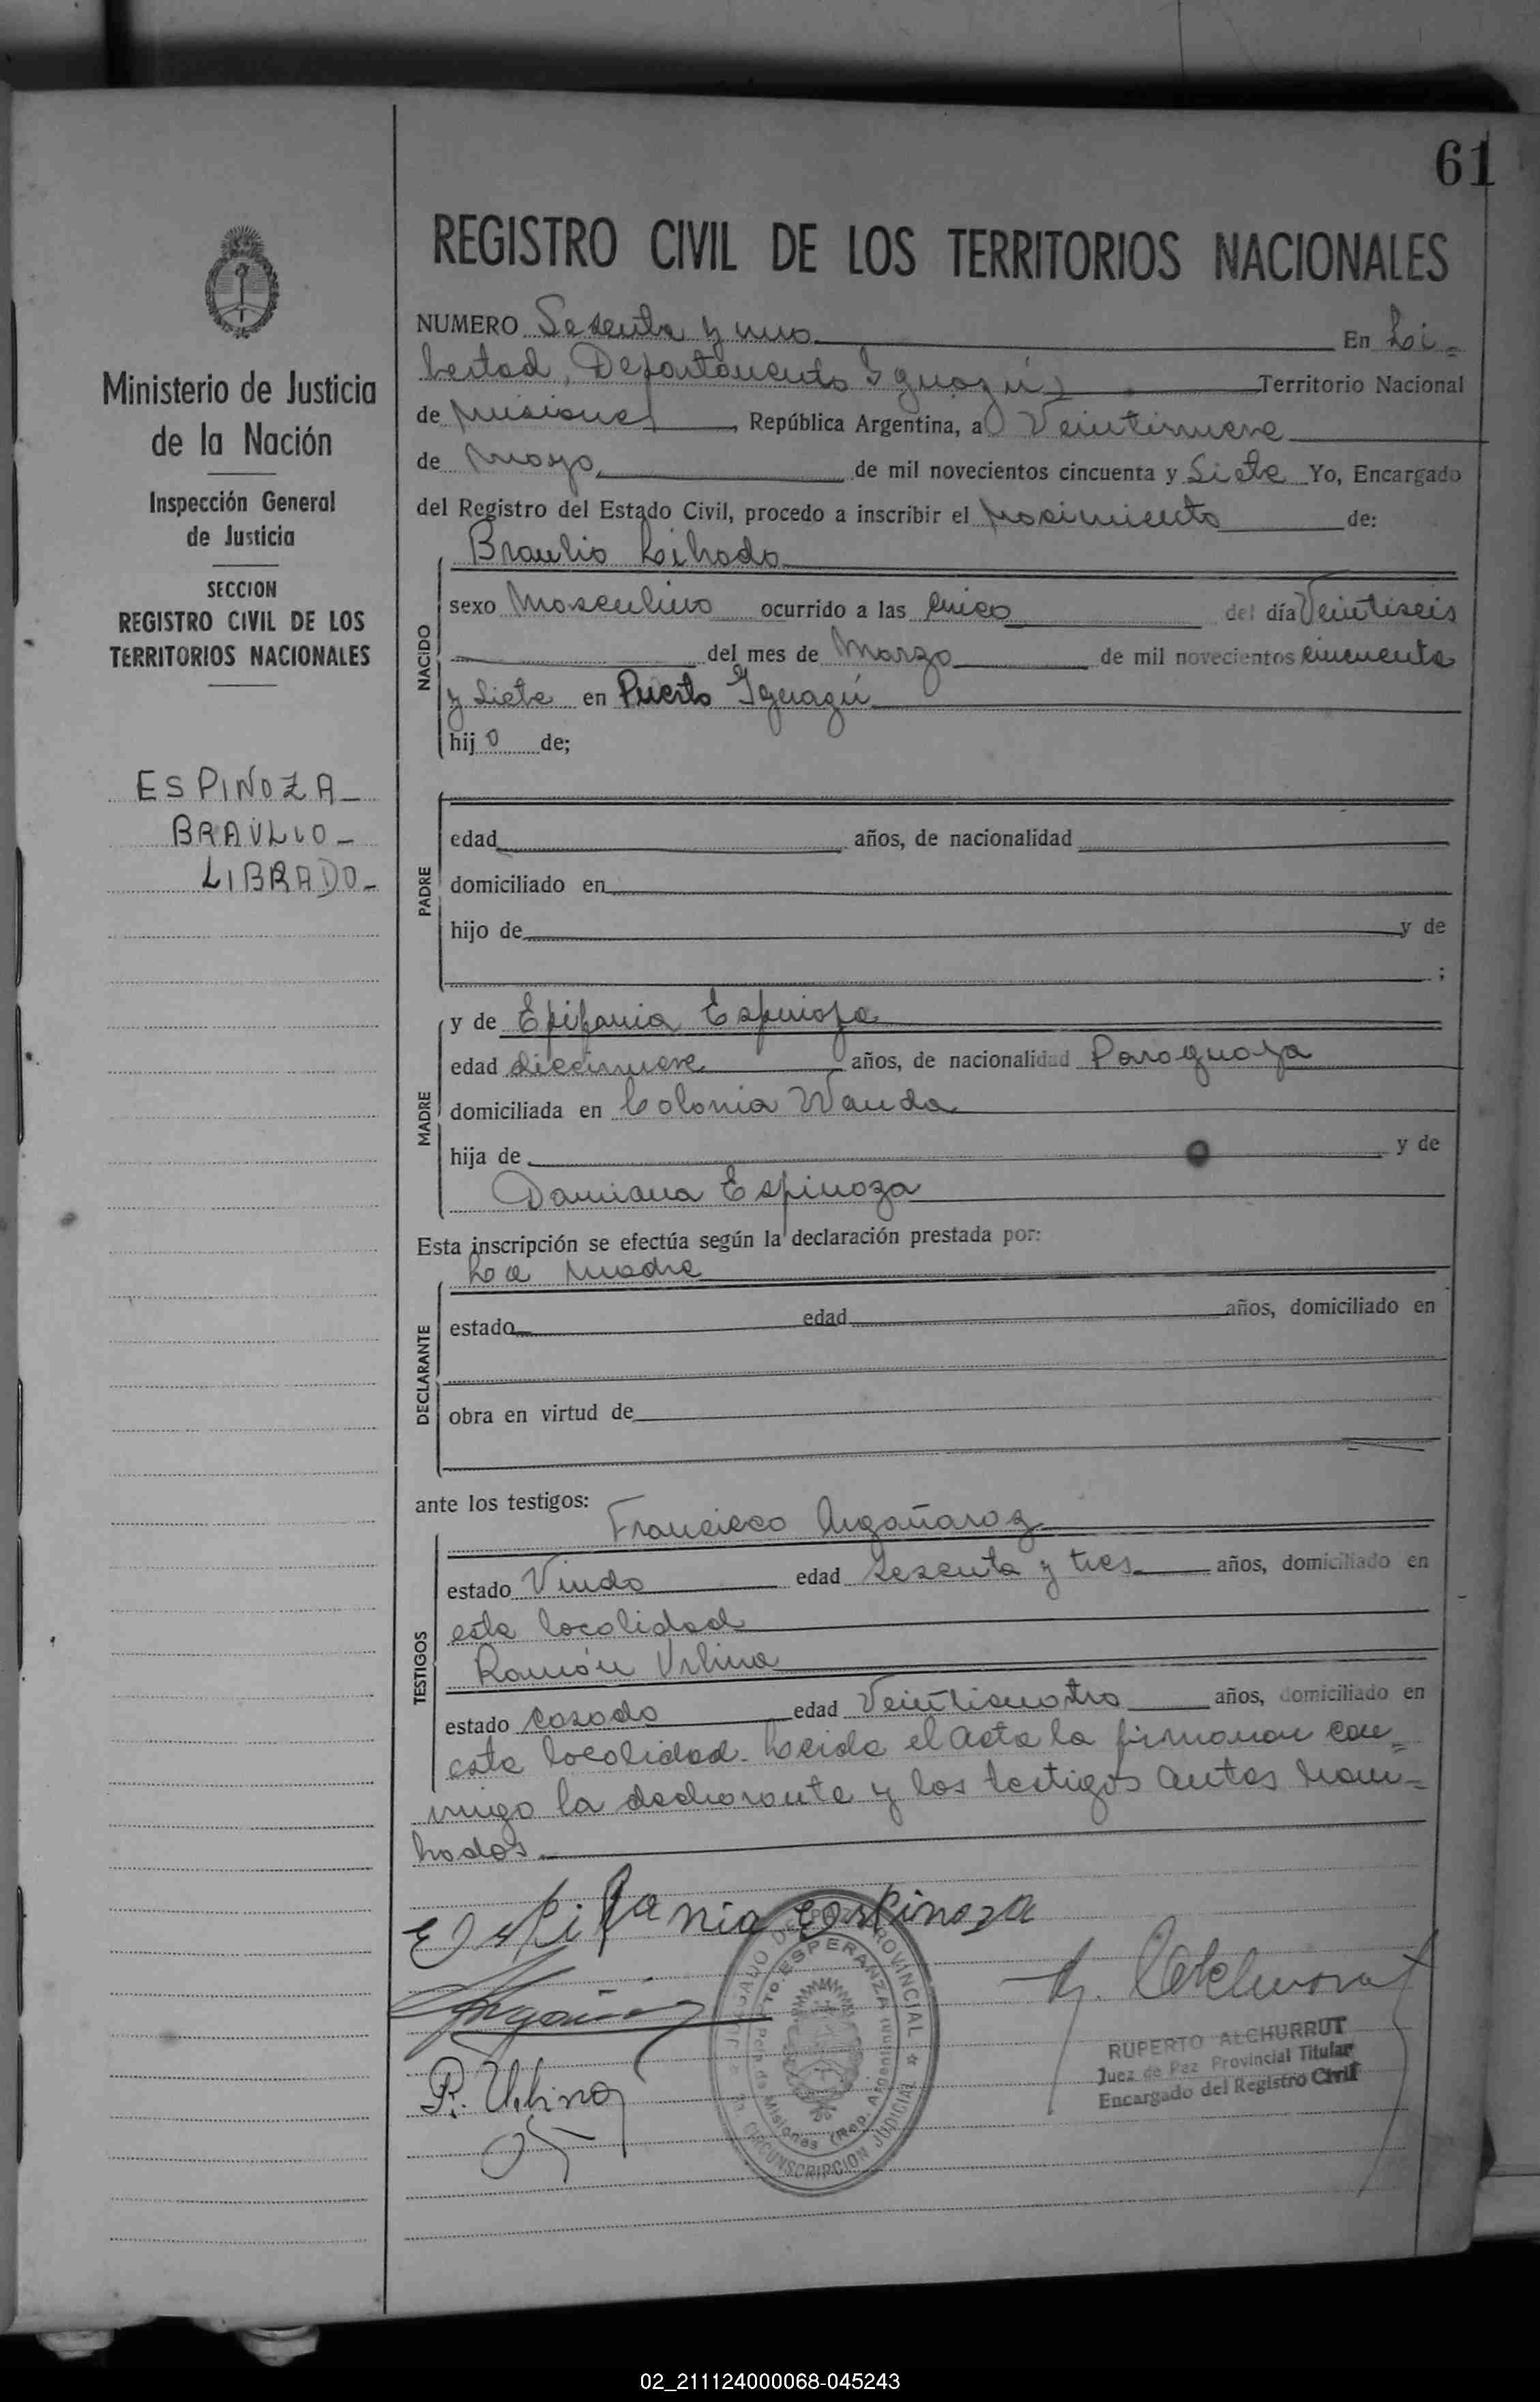 61
REGISTRO CIVIL DE LOS TERRITORIOS NACIONALES
Ministerio de Justicia
de la Nación
Inspección General
de Justicia
SECCION
REGISTRO CIVIL DE LOS
TERRITORIOS NACIONALES
ESPINOZA-
BRAULIO-
LIBRADO-
NUMERO Sesenta y uno En Li-
bertad, Departamento Iguazú Territorio Nacional
de Misiones, República Argentina, a Veintinueve
de Mayo de mil novecientos cincuenta y Siete Yo, Encargado
del Registro del Estado Civil, procedo a inscribir el Nacimiento de:
NACIDO
Braulio Librado
sexo Masculino ocurrido a las cinco del día Veintiseis
del mes de Marzo de mil novecientos cincuenta
y Siete en Puerto Iguazú
hij o de;
PADRE
edad años, de nacionalidad
domiciliado en
hijo de y de
;
MADRE
y de Epifania Espinoza
edad diecinueve años, de nacionalidad Paraguaya
domiciliada en Colonia Wanda
hija de y de
Damiana Espinoza
Esta inscripción se efectúa según la declaración prestada por:
La Madre
DECLARANTE
estado edad años, domiciliado en
obra en virtud de
ante los testigos:
TESTIGOS
Francisco Argañaraz
estado Viudo edad Sesenta y tres años, domiciliado en
esta localidad
Ramón Urbina
estado casado edad Veinticuatro años, domiciliado en
esta localidad. Leida el acta la firmaron con=
migo la declarante y los testigos antes nom=
brados.
Epifania Espinoza
R. Urbina
JUZGADO DE PAZ PROVINCIAL
Pto. ESPERANZA
Pcia de Misiones (Rep. Argentina)
CIRCUNSCRIPCION JUDICIAL
RUPERTO ALCHURRUT
Juez de Paz Provincial Titular
Encargado del Registro Civil
02_211124000068-045243